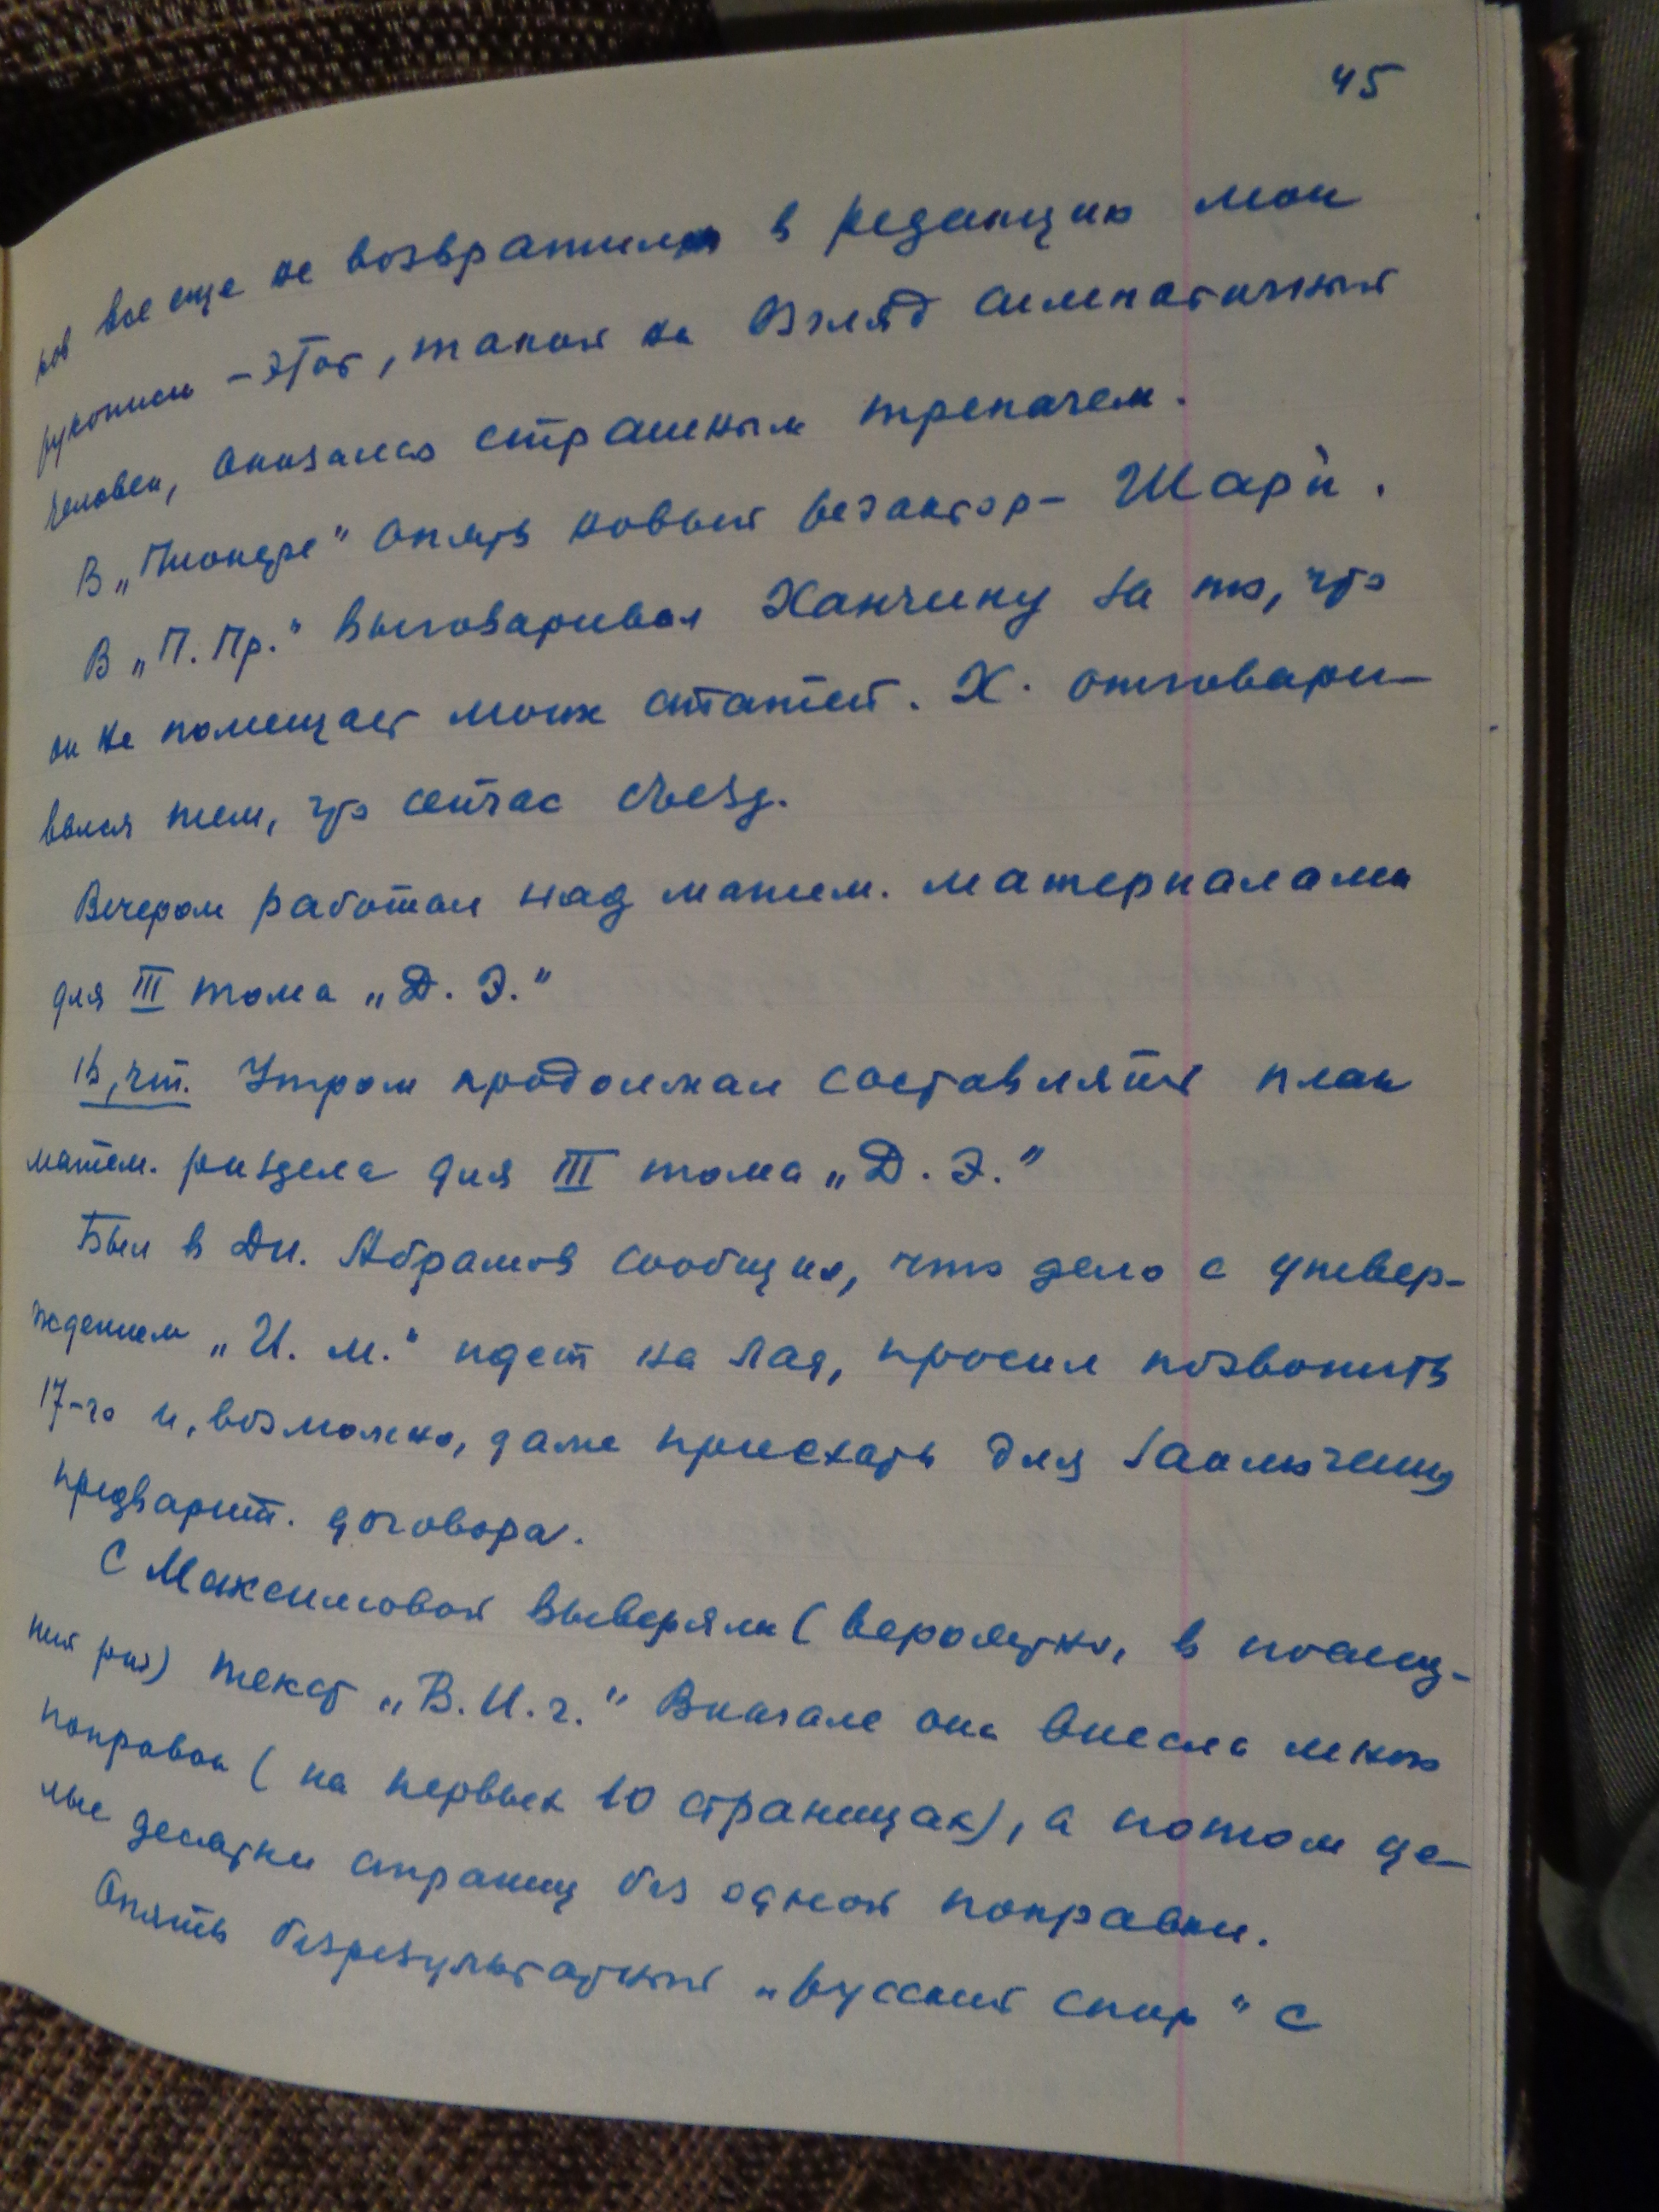 45
ков все еще не возвратил в редакцию мои
рукописи – этот, такой на взгляд симпатичный
человек, оказался страшным трепачем.
В „Пионере" опять новый редактор – Шари.
В „П. Пр." выговаривал Ханчину за то, что
он не помещает моих статей. Х. отговари-
вался тем, что сейчас съезд.
Вечером работал над матем. материалами
для III тома „Д. Э."
16, чт. Утром продолжал составлять план
матем. раздела для III тома „Д. Э."
Был в ДИ. Абрамов сообщил, что дело с утвер-
ждением „И. м." идет на лад, просил позвонить
17-го и, возможно, даже приехать для заключения
предварит. договора.
С Максимовой выверяли (вероятно, в послед-
ний раз) текст „В. И. г." Вначале она внесла много
поправок (на первых 10 страницах), а потом це-
лые десятки страниц без одной поправки.
Опять безрезультатный „русский спор" с